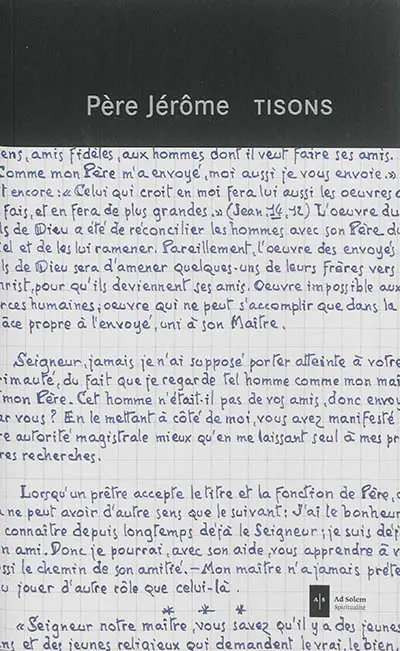 Père Jérôme TISONS
ens, amis fidèles, aux hommes dont il veut faire ses amis.
Comme mon Père m'a envoyé, moi aussi je vous envoie. »
t encore : « Celui qui croit en moi fera lui aussi les oeuvres q
fais, et en fera de plus grandes. » (Jean 14, 12) L'oeuvre du
ls de Dieu a été de réconcilier les hommes avec son Père du
iel et de les lui ramener. Pareillement, l'oeuvre des envoyés
ls de Dieu sera d'amener quelques-uns de leurs frères vers
hrist, pour qu'ils deviennent ses amis. Oeuvre impossible aux
rces humaines ; oeuvre qui ne peut s'accomplir que dans la
âce propre à l'envoyé, uni à son Maître.
Seigneur, jamais je n'ai supposé porter atteinte à votre
rimauté, du fait que je regarde tel homme comme mon maî
mon Père. Cet homme n'était-il pas de vos amis, donc envoy
ar vous ? En le mettant à côté de moi, vous avez manifesté
re autorité magistrale mieux qu'en me laissant seul à mes pr
res recherches.
Lorsqu'un prêtre accepte le titre et la fonction de Père, c
a ne peut avoir d'autre sens que le suivant : J'ai le bonheur
connaître depuis longtemps déjà le Seigneur ; je suis déjà
n ami. Donc je pourrai, avec son aide, vous apprendre à v
ssi le chemin de son amitié. — Mon maître n'a jamais préte
u jouer d'autre rôle que celui-là.
* * *
« Seigneur notre maître, vous savez qu'il y a des jeunes
ns et des jeunes religieux qui demandent le vrai, le bien,
A|S Ad Solem
Spiritualité